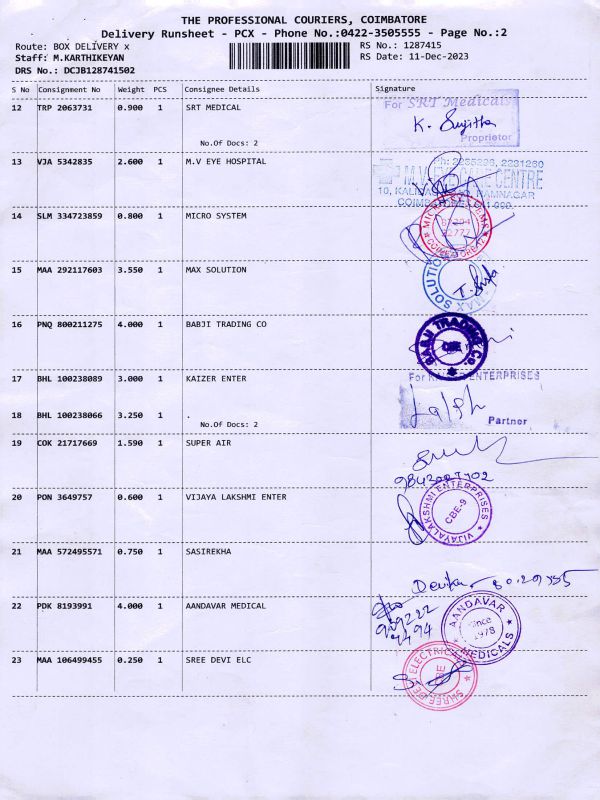 THE PROFESSIONAL COURIERS, COIMBATORE
Delivery Runsheet - PCX - Phone No.:0422-3505555 - Page No.:2
Route: BOX DELIVERY x
RS No.: 1287415
Staff: M.KARTHIKEYAN
RS Date: 11-Dec-2023
DRS No.: DCJB128741502
S No Consignment No Weight PCS Consignee Details Signature
12 TRP 2063731 0.900 1 SRT MEDICAL
For SRT Medicals
K. Sujitha
Proprietor
No.Of Docs: 2
13 VJA 5342835 2.600 1 M.V EYE HOSPITAL
M.V. EYE CARE CENTRE
RAMNAGAR
14 SLM 334723859 0.800 1 MICRO SYSTEM
MICRO SYSTEMS
15 MAA 292117603 3.550 1 MAX SOLUTION
MAX SOLUTION
16 PNQ 800211275 4.000 1 BABJI TRADING CO
BABJI TRADING CO.
CBE
17 BHL 100238089 3.000 1 KAIZER ENTER
For KAIZER ENTERPRISES
18 BHL 100238066 3.250 1 .
Partner
No.Of Docs: 2
19 COK 21717669 1.590 1 SUPER AIR
20 PON 3649757 0.600 1 VIJAYA LAKSHMI ENTER
VIJAYALAKSHMI ENTERPRISES
CBE-9
21 MAA 572495571 0.750 1 SASIREKHA
22 PDK 8193991 4.000 1 AANDAVAR MEDICAL
AANDAVAR MEDICALS
Since
1978
23 MAA 106499455 0.250 1 SREE DEVI ELC